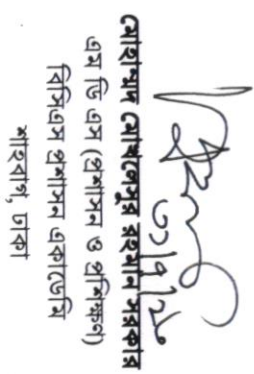 ৩১/৭/২০
মোহাম্মদ মোখলেসুর রহমান সরকার
এম ডি এস (প্রশাসন ও প্রশিক্ষণ)
বিসিএস প্রশাসন একাডেমি
শাহবাগ, ঢাকা